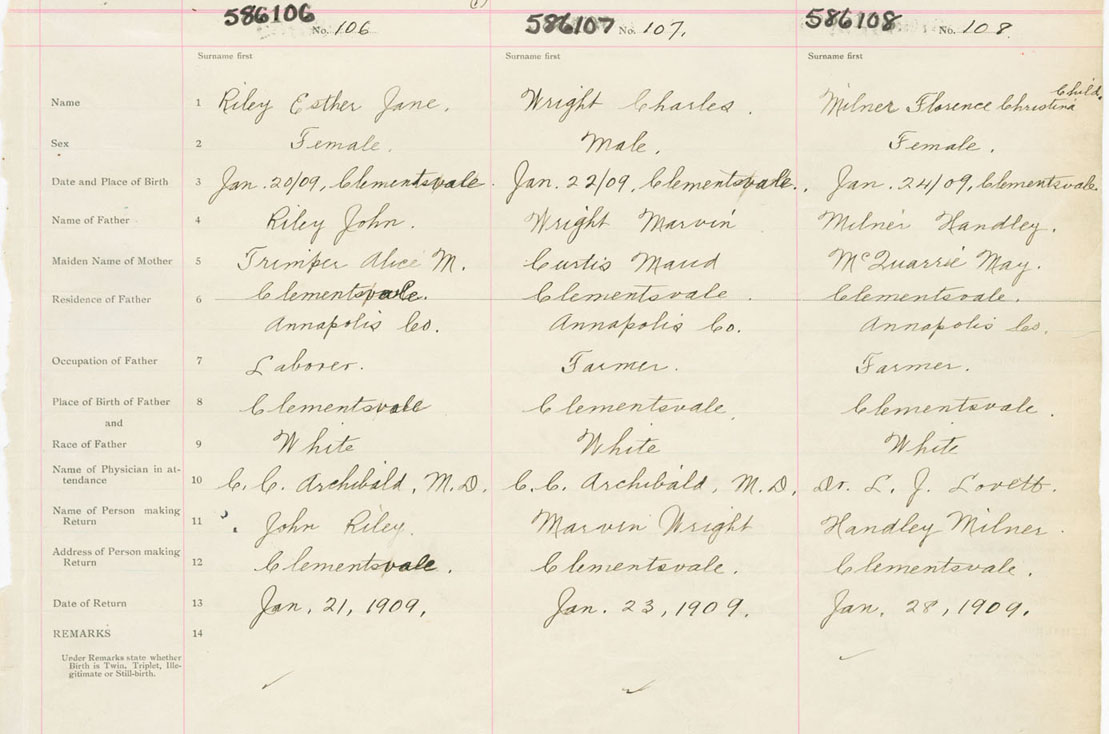 (1)
586106 No. 106 586107 No. 107. 586108 No. 108.
Surname first Surname first Surname first
Name 1 Riley Esther Jane. Wright Charles. Milner Florence Christina Child.
Sex 2 Female. Male. Female.
Date and Place of Birth 3 Jan. 20/09, Clementsvale. Jan. 22/09, Clementsvale. Jan. 24/09, Clementsvale.
Name of Father 4 Riley John. Wright Marvin Milner Handley.
Maiden Name of Mother 5 Trimper Alice M. Curtis Maud McQuarrie May.
Residence of Father 6 Clementsvale. Clementsvale. Clementsvale.
Annapolis Co. Annapolis Co. Annapolis Co.
Occupation of Father 7 Laborer. Farmer. Farmer.
Place of Birth of Father 8 Clementsvale Clementsvale. Clementsvale.
and
Race of Father 9 White White White
Name of Physician in at-
tendance 10 C. C. Archibald, M.D. C.C. Archibald, M.D. Dr. L. J. Lovett.
Name of Person making
Return 11 John Riley. Marvin Wright Handley Milner.
Address of Person making
Return 12 Clementsvale. Clementsvale. Clementsvale.
Date of Return 13 Jan. 21, 1909. Jan. 23, 1909. Jan. 28, 1909.
REMARKS 14
Under Remarks state whether
Birth is Twin, Triplet, Ille-
gitimate or Still-birth.